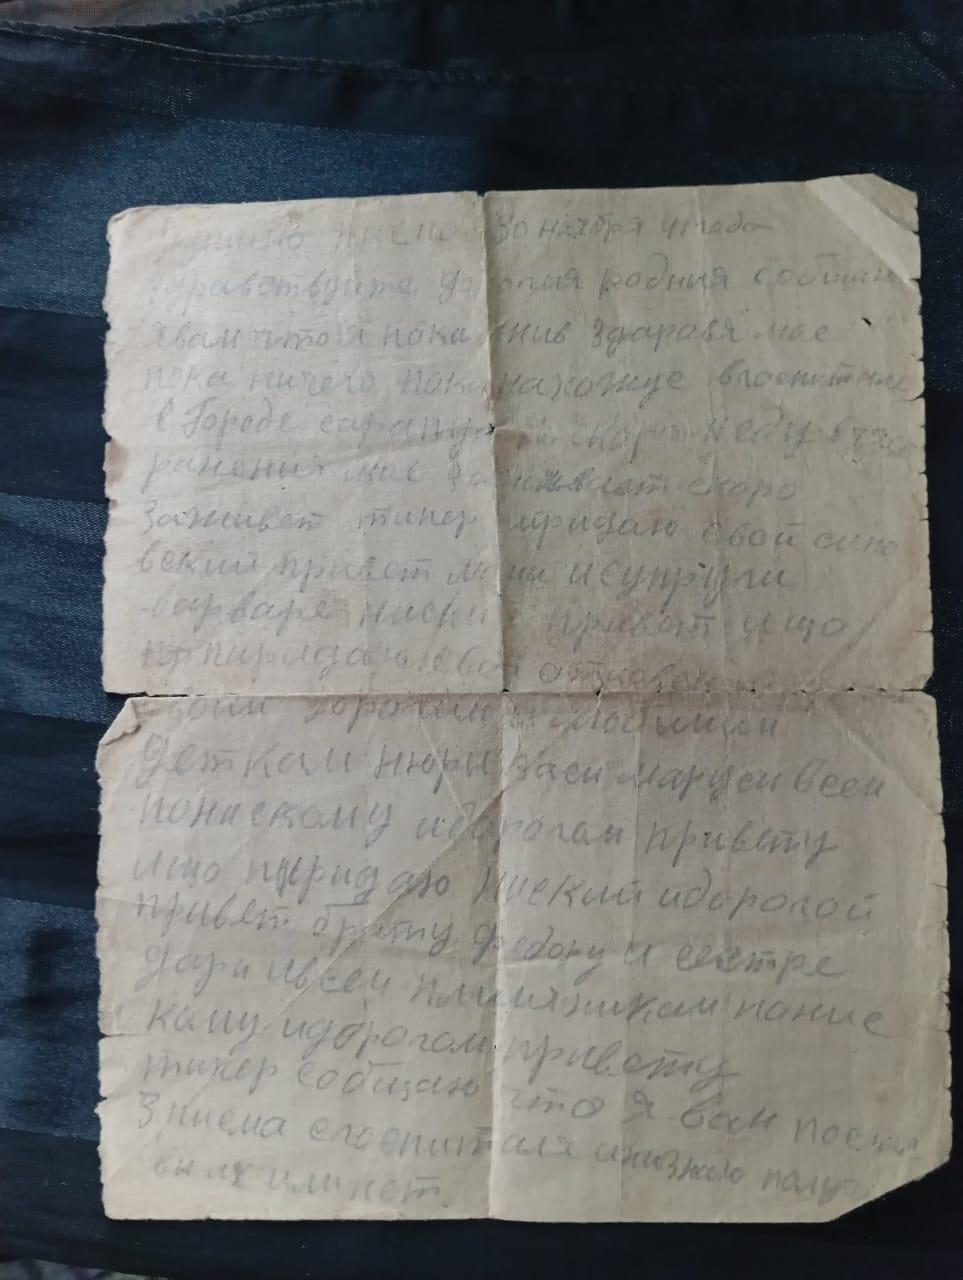 писмо 30 ноября
здравствуйте дорогия родныя сообщаю
я вам что я пока жив здаровя мое
пока ничего пока нахожус вгоспитале
в Городе
ранения мае заживает скоро
заживет типер придаю свой сыно
вский привет мами исупруги
варваре ниски привет ищо
пиридаю свой отцовский
своим дорогим илюбимим
деткам нюри Васи маруси всем
понискому идорогом привету
ищо пиридаю ниский идорогой
привет брату федору и сестре
дари ивсем плимяникам пание
каму идорогом привету
типер собщаю что я вам послал
3 писма сгоспиталя инизнаю
вы их или нет